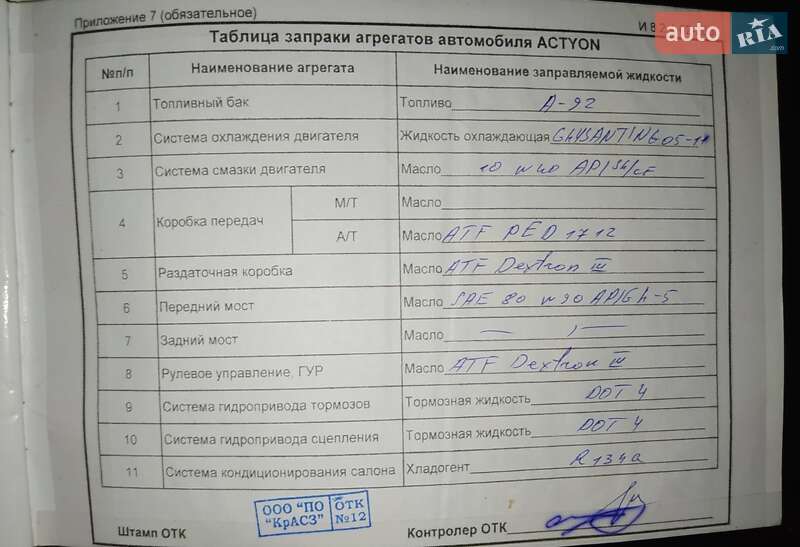 Приложение 7 (обязательное)
И 8.2
auto RIA .com
Таблица запраки агрегатов автомобиля ACTYON
№п/п Наименование агрегата Наименование заправляемой жидкости
1 Топливный бак Топливо А-92
2 Система охлаждения двигателя Жидкость охлаждающая GLYSANTIN G05-11
3 Система смазки двигателя Масло 10 w 40 API SH/CF
4 Коробка передач М/Т Масло
А/Т Масло ATF PED 1712
5 Раздаточная коробка Масло ATF Dextron III
6 Передний мост Масло SAE 80 w 90 API GL-5
7 Задний мост Масло — , —
8 Рулевое управление, ГУР Масло ATF Dextron III
9 Система гидропривода тормозов Тормозная жидкость DOT 4
10 Система гидропривода сцепления Тормозная жидкость DOT 4
11 Система кондиционирования салона Хладогент R 134a
ООО "ПО "КрАСЗ" ОТК №12
Штамп ОТК Контролер ОТК